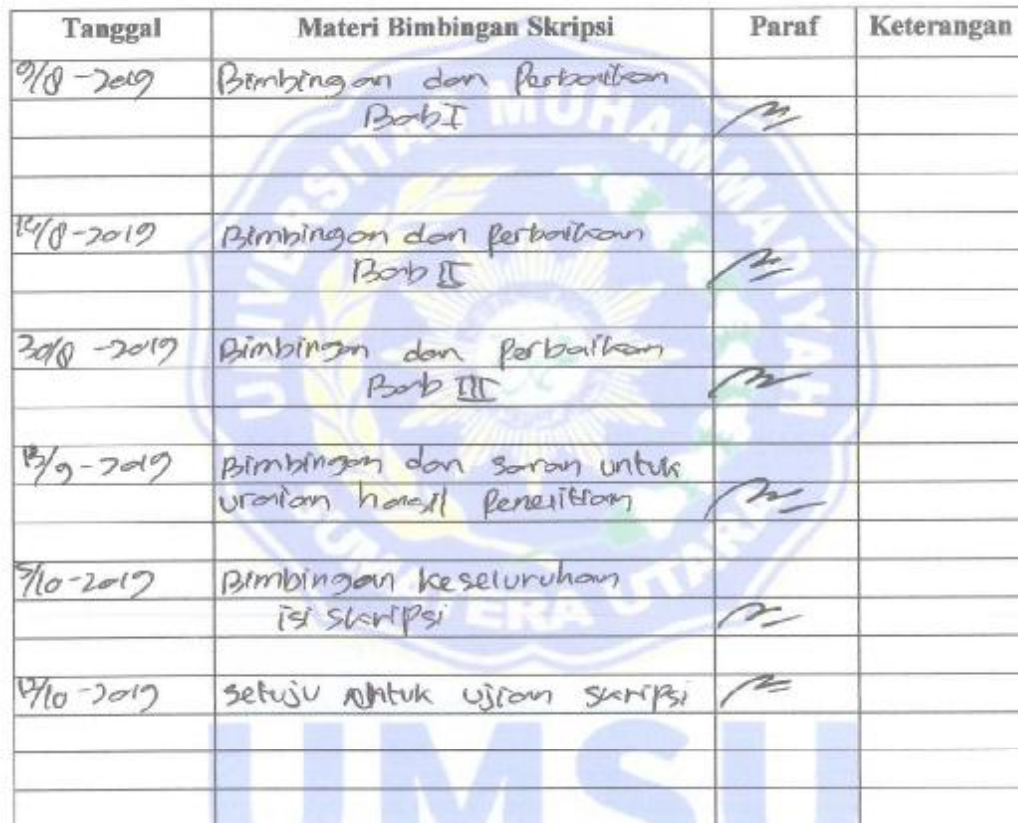 Tanggal Materi Bimbingan Skripsi Paraf Keterangan
9/8-2019 Bimbingan dan Perbaikan
Bab I
/8-2019 Bimbingan dan Perbaikan
Bab II
30/8 -2019 Bimbingan dan Perbaikan
Bab III
/9-2019 Bimbingan dan saran untuk
uraian hasil Penelitian
5/10-2019 Bimbingan keseluruhan
isi skripsi
/10-2019 setuju untuk ujian skripsi
UNIVERSITAS MUHAMMADIYAH
SUMATERA UTARA
UMSU